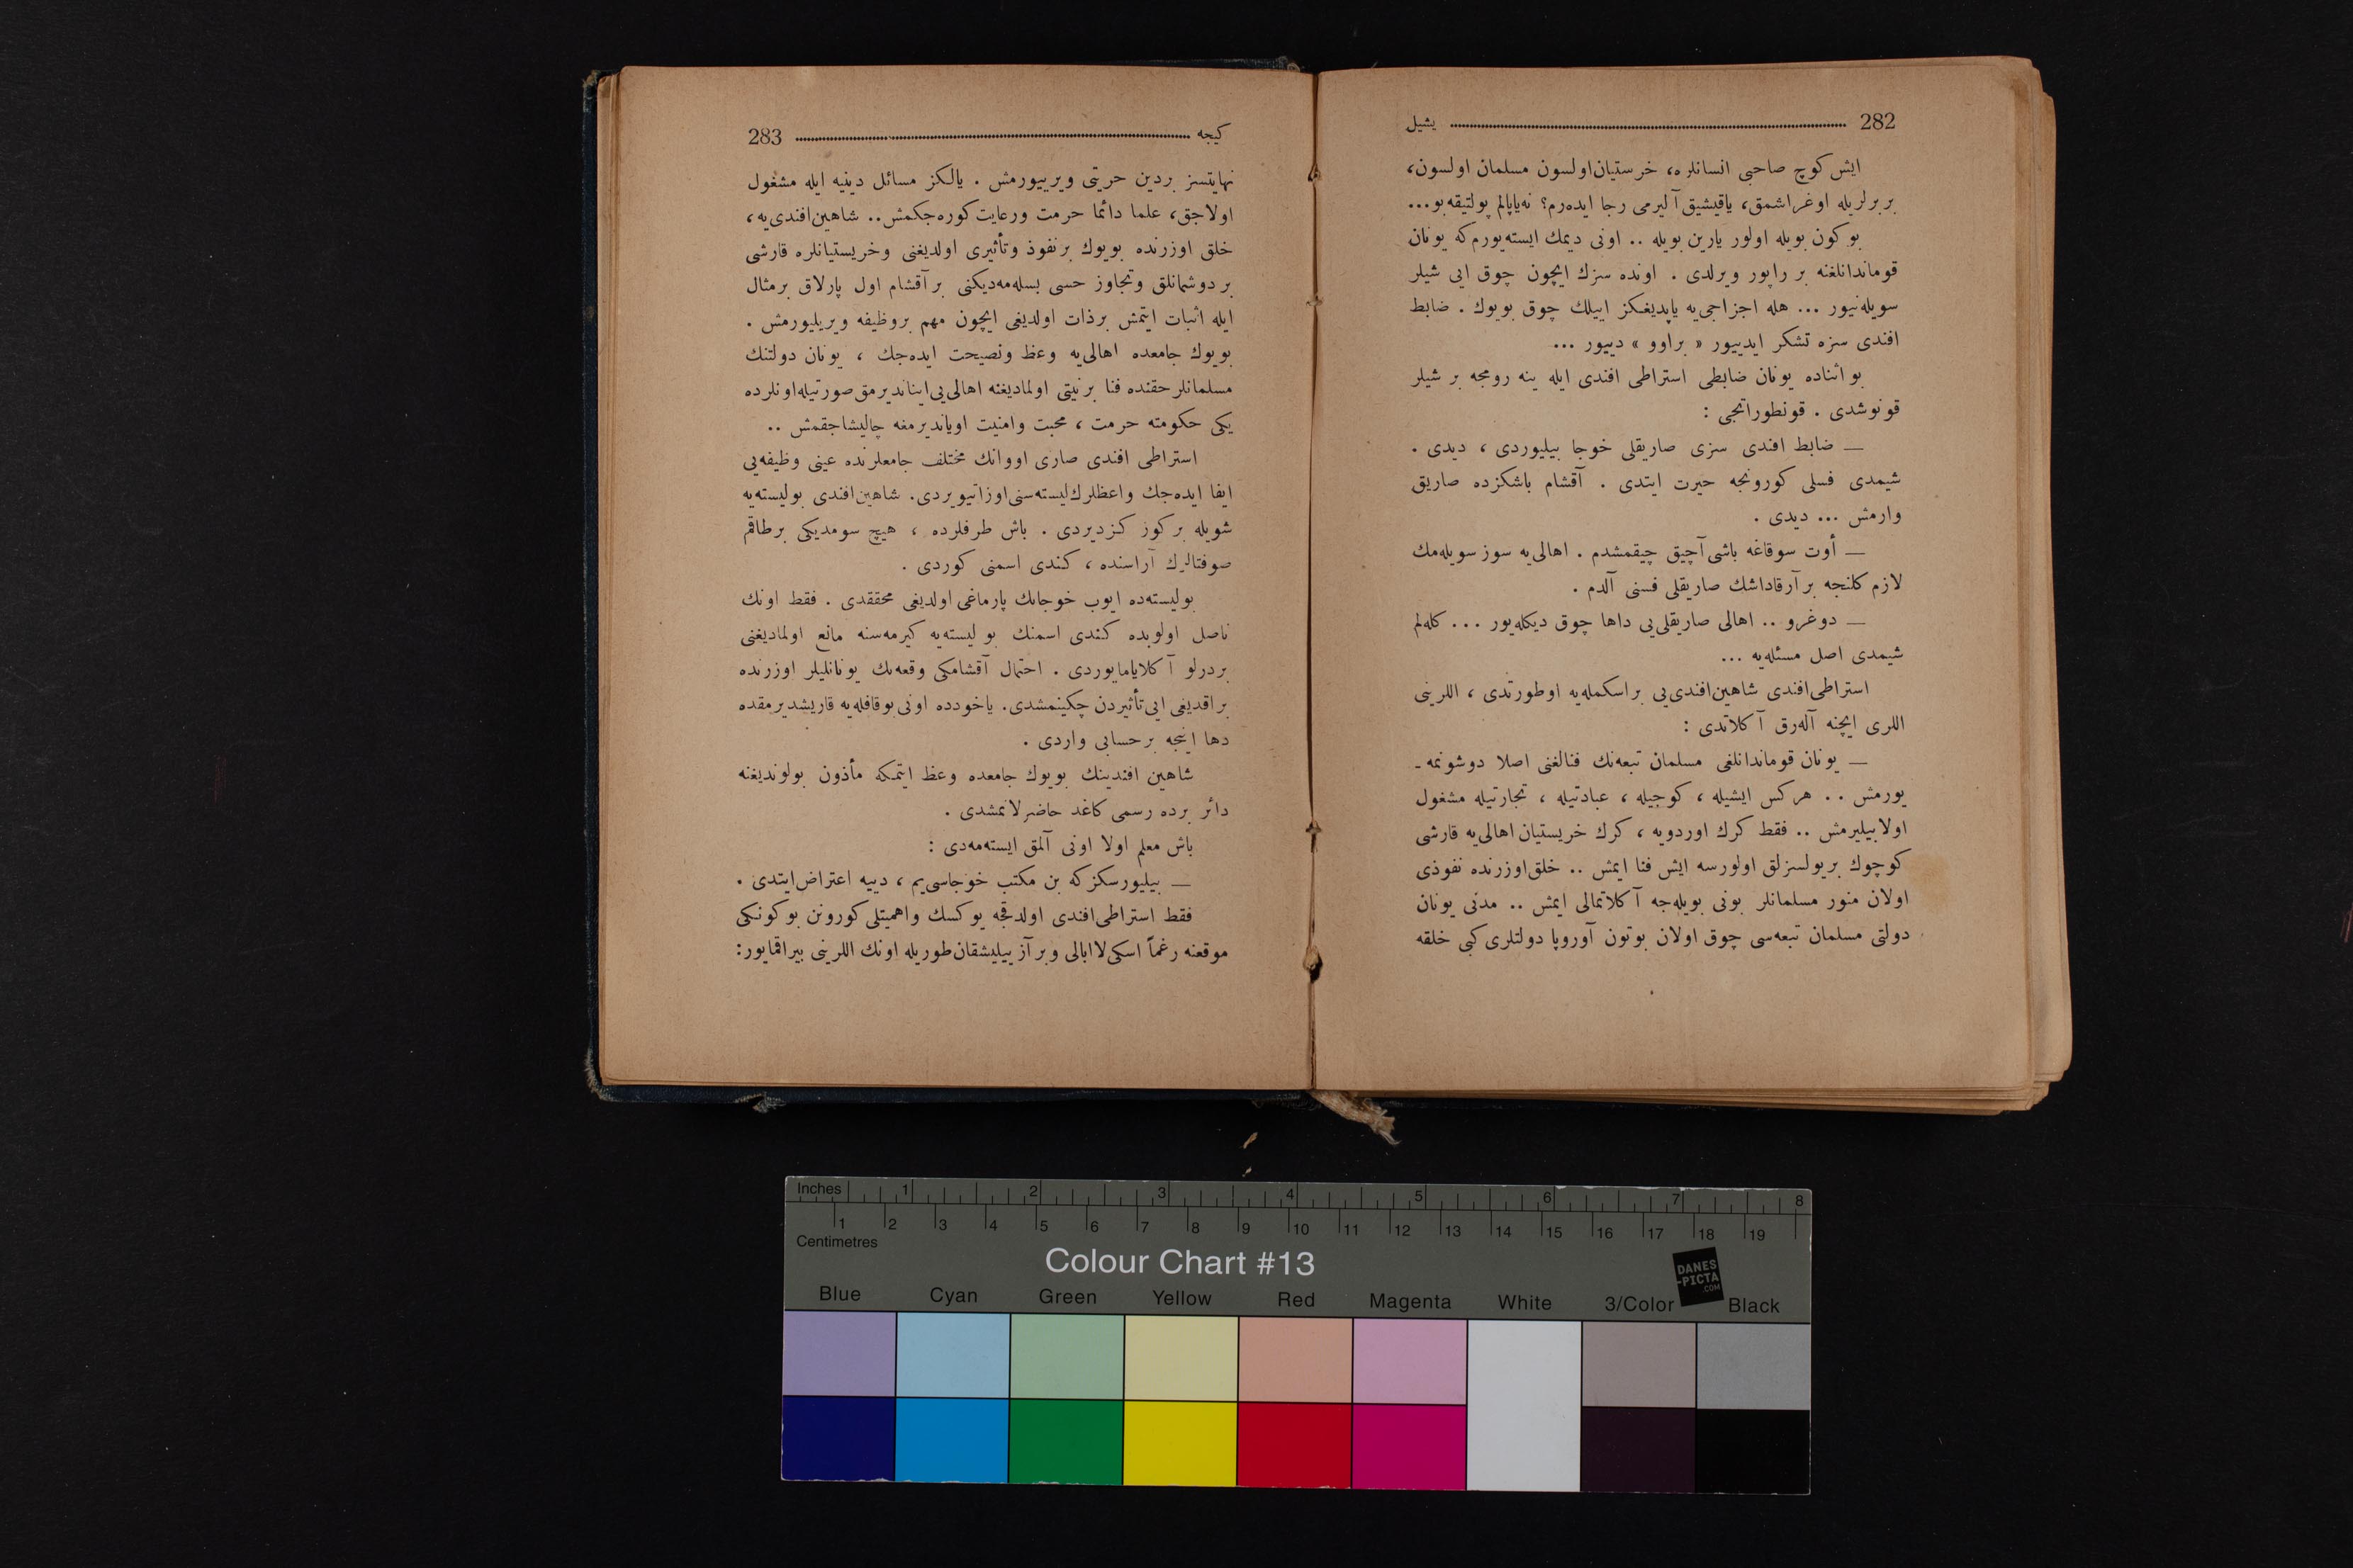 282 يشيل
ايش كوج صاحبی انسانلره، خرستيان اولسون مسلمان اولسون،
بربرلريله اوغراشمق، ياقيشيق آليرمی رجا ايده‌رم؟ نه ياپالم پولتيقه بو...
بوكون بويله اولور يارين بويله .. اونی ديمك ايسته‌يورم كه يونان
قوماندانلغنه بر راپور ويرلدی . اونده سزك ايچون چوق ايی شيلر
سويله‌نيور ... هله اجزاجی‌يه ياپديغكز اييلك چوق بويوك . ضابط
افندی سزه تشكر ايدييور « براوو » دييور ...
بو اثناده يونان ضابطی استراطی افندی ايله ينه رومجه بر شيلر
قونوشدی . قونطوراتجی :
— ضابط افندی سزی صاريقلی خوجا بيليوردی ، ديدی .
شيمدی فسلی كورونجه حيرت ايتدی . آقشام باشكزده صاريق
وارمش ... ديدی .
— أوت سوقاغه باشی آچيق چيقمشدم . اهالی‌يه سوز سويله‌مك
لازم كلنجه بر آرقاداشك صاريقلی فسنی آلدم .
— دوغرو .. اهالی صاريقلی‌يی داها چوق ديكله‌يور ... كله‌لم
شيمدی اصل مسئله‌يه ...
استراطی افندی شاهين افندی‌يی بر اسكمله‌يه اوطورتدی ، اللرينی
اللری ايچنه آله‌رق آكلاتدی :
— يونان قوماندانلغی مسلمان تبعه‌نك فنالغنی اصلا دوشونمه -
يورمش .. هركس ايشيله ، كوجيله ، عبادتيله ، تجارتيله مشغول
اولابيليرمش .. فقط كرك اوردويه ، كرك خريستيان اهالی‌يه قارشی
كوچوك بر يولسزلق اولورسه ايش فنا ايمش .. خلق اوزرنده نفوذی
اولان منور مسلمانلر بونی بويله‌جه آكلاتمالی ايمش .. مدنی يونان
دولتی مسلمان تبعه‌سی چوق اولان بوتون آوروپا دولتلری كبی خلقه
كيجه 283
نهايتسز بر دين حريتی ويرييورمش . يالكز مسائل دينيه ايله مشغول
اولاجق، علما دائما حرمت ورعايت كوره‌جكمش.. شاهين افندی‌يه،
خلق اوزرنده بويوك بر نفوذ وتأثيری اولديغنی وخريستيانلره قارشی
بر دوشمانلق وتجاوز حسی بسله‌مه‌ديكنی بر آقشام اول پارلاق بر مثال
ايله اثبات ايتمش بر ذات اولديغی ايچون مهم بر وظيفه ويريليورمش .
بويوك جامعده اهالی‌يه وعظ ونصيحت ايده‌جك ، يونان دولتنك
مسلمانلر حقنده فنا بر نيتی اولماديغنه اهالی‌يی ايناندیرمق صورتيله اونلرده
يكی حكومته حرمت ، محبت وامنيت اوياندیرمغه چاليشاجقمش ..
استراطی افندی صاری اووانك مختلف جامعلرنده عينی وظيفه‌يی
ايفا ايده‌جك واعظلرك ليسته‌سنی اوزاتيويردی. شاهين افندی بو ليسته‌يه
شويله بر كوز كزديردی . باش طرفلرده ، هيچ سومديكی بر طاقم
صوفتالرك آراسنده ، كندی اسمنی كوردی .
بو ليسته‌ده ايوب خوجانك پارماغی اولديغی محققدی . فقط اونك
ناصل اولوبده كندی اسمنك بو ليسته‌يه كيرمه‌سنه مانع اولماديغنی
بردرلو آكلايامايوردی . احتمال آقشامكی وقعه‌نك يونانليلر اوزرنده
براقديغی ايی تأثيردن چكينمشدی. ياخودده اونی بو قافله‌يه قاريشديرمقده
دها اينجه بر حسابی واردی .
شاهين افندينك بويوك جامعده وعظ ايتمكه مأذون بولونديغنه
دائر برده رسمی كاغد حاضرلانمشدی .
باش معلم اولا اونی آلمق ايسته‌مه‌دی :
— بيليورسكز كه بن مكتب خوجاسی‌يم ، دييه اعتراض ايتدی .
فقط استراطی افندی اولدقجه يوكسك واهميتلی كورونن بوكونكی
موقعنه رغماً اسكی لاابالی وبر آز ييليشقان طوريله اونك اللرينی بيراقمايور:
Inches 1 2 3 4 5 6 7 8
1 2 3 4 5 6 7 8 9 10 11 12 13 14 15 16 17 18 19
Centimetres
Colour Chart #13
DANES
-PICTA
.COM
Blue Cyan Green Yellow Red Magenta White 3/Color Black